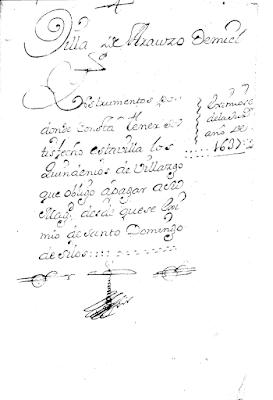 Villa de Arauzo de miel
Instrumentos por
donde consta tener sa
tisfecho esta villa los
quindenios de Villargo
que obligo a pagar a su
Mag. desde que se exi
mio de Santo Domingo
de Silos
eximiose
de la
año de
1637